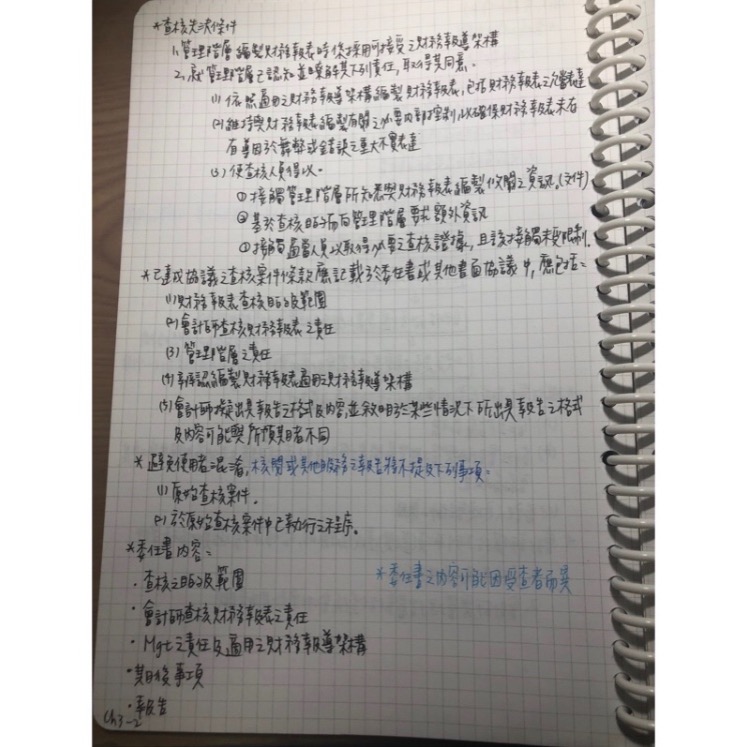 *查核先決條件
1.管理階層編製財務報表時係採用可接受之財務報導架構
2.就管理階層已認知並瞭解其下列責任,取得其同意。
(1)依照適用之財務報導架構編製財務報表,包括財務報表之允當表達
(2)維持與財務報表編製有關之必要內部控制,以確保財務報表未存
有導因於舞弊或錯誤之重大不實表達
(3)使查核人員得以。
①接觸管理階層所知悉與財務報表編製攸關之資訊。(文件)
②基於查核目的而向管理階層要求額外資訊
③接觸適當人員以取得必要之查核證據,且該接觸未受限制。
*已達成協議之查核案件條款應記載於委任書或其他書面協議中,應包括:
(1)財務報表查核目的及範圍
(2)會計師查核財務報表之責任
(3)管理階層之責任
(4)辨認編製財務報表適用之財務報導架構
(5)會計師擬出具報告之格式及內容,並敘明於某些情況下所出具報告之格式
及內容可能與所預期者不同
*避免使用者混淆,核閱或其他服務之報告將不提及下列事項:
(1)原始查核案件。
(2)於原始查核案件中已執行之程序。
*委任書內容:
·查核之目的及範圍
*委任書之內容可能因受查者而異
·會計師查核財務報表之責任
·Mgt之責任及適用之財務報導架構
·期後事項
·報告
Ch3-2